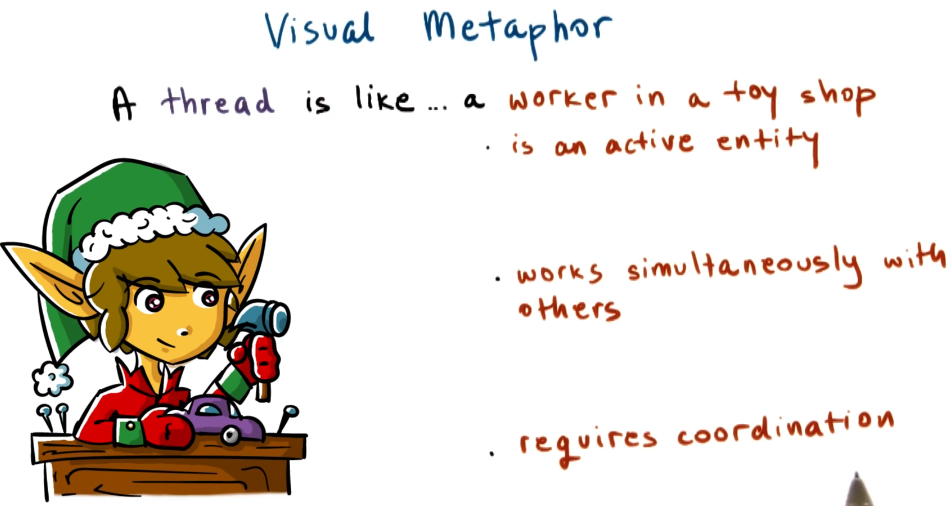 Visual Metaphor
A thread is like... a worker in a toy shop
· is an active entity
· works simultaneously with
others
· requires coordination